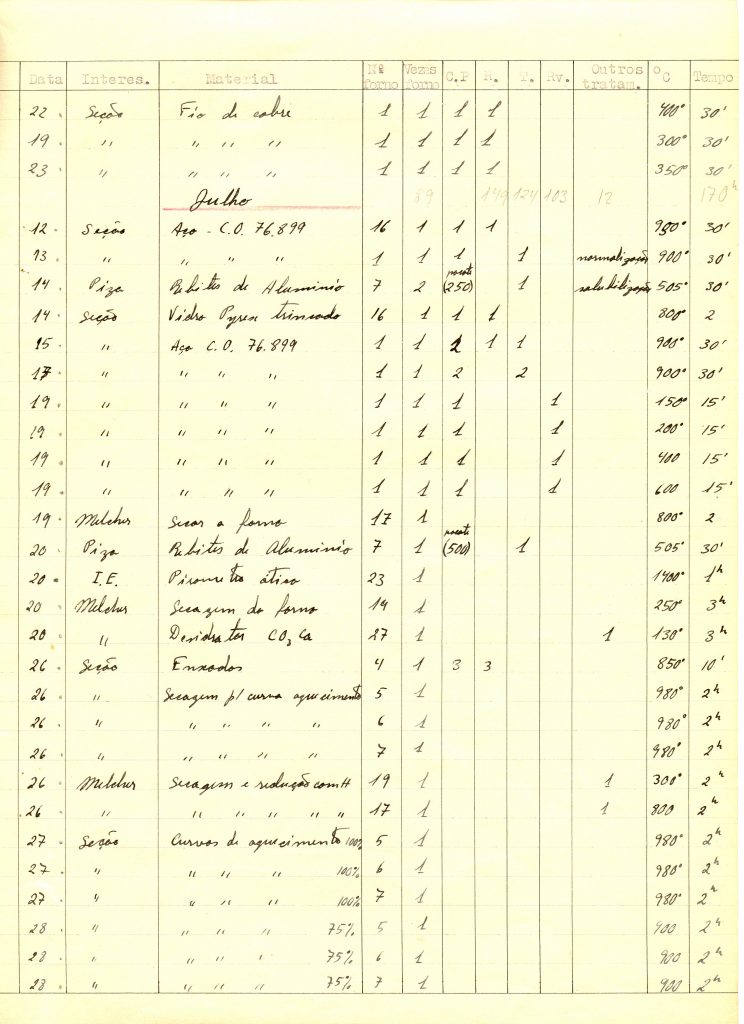 Data Interes. Material Nº forno Vezes forno C.P R. T. Rv. Outros tratam. ºC Tempo
22 . Seção Fio de cobre 1 1 1 1 400° 30'
19 . " " " " 1 1 1 1 300° 30'
23 . " " " " 1 1 1 1 350° 30'
Julho 89 149 124 103 12 170h
12 . Seção Aço - C.O. 76.899 16 1 1 1 980° 30'
13 . " " " " 1 1 1 1 normalização 900° 30'
14 . Piza Rebites de Aluminio 7 2 pacote (250) 1 solubilização 505° 30'
14 . Seção Vidro Pyrex trincado 16 1 1 1 800° 2
15 " Aço C.O. 76.899 1 1 2 1 1 900° 30'
17 . " " " " 1 1 2 2 900° 30'
19 . " " " " 1 1 1 1 150° 15'
19 . " " " " 1 1 1 1 200° 15'
19 . " " " " 1 1 1 1 400 15'
19 . " " " " 1 1 1 1 600 15'
19 . Melcher Secar o forno 17 1 800° 2
20 . Piza Rebites de Aluminio 7 1 pacote (500) 1 505° 30'
20 . I.E. Pirometro ótico 23 1 1400° 1h
20 . Melcher Secagem do forno 19 1 250° 3h
20 . " Desidratar CO3Ca 27 1 1 130° 3h
26 . Seção Enxadas 4 1 3 3 850° 10'
26 . " Secagem p/ curva aquecimento 5 1 980° 2h
26 . " " " " " 6 1 980° 2h
26 . " " " " 7 1 980° 2h
26 . Melcher Secagem e redução com H 19 1 1 300° 2h
26 . " " " " " " 17 1 1 800 2h
27 . Seção Curvas de aquecimento 100% 5 1 980° 2h
27 . " " " " 100% 6 1 980° 2h
27 . " " " " 100% 7 1 980° 2h
28 . " " " " 75% 5 1 900 2h
28 . " " " " 75% 6 1 900 2h
28 . " " " " 75% 7 1 900 2h